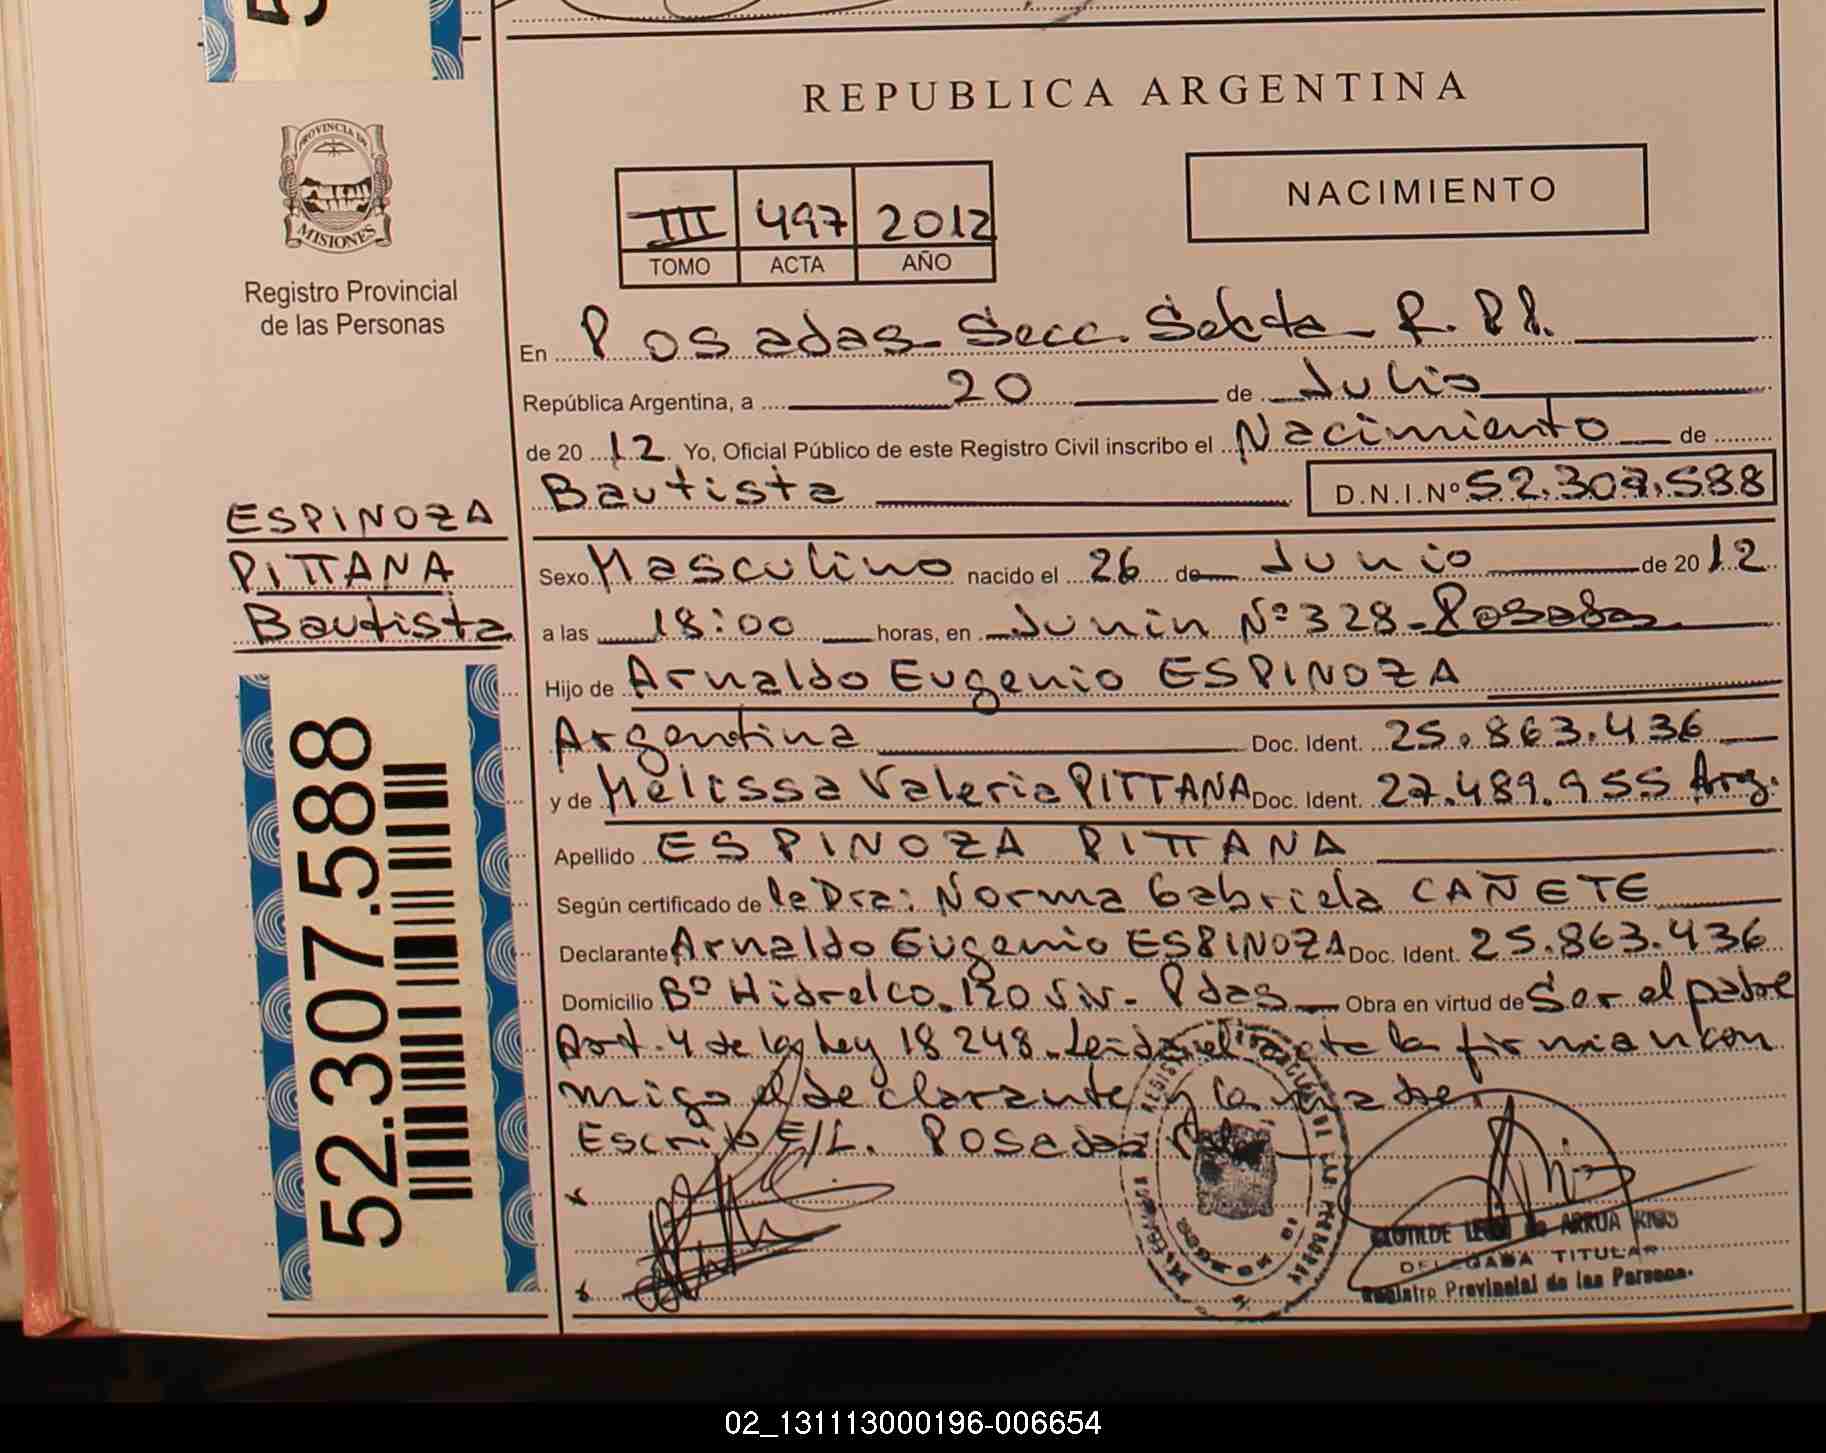 REPUBLICA ARGENTINA
PROVINCIA DE
MISIONES
Registro Provincial
de las Personas
NACIMIENTO
III 497 2012
TOMO ACTA AÑO
En Posadas Secc. Sexta R.P.P.
República Argentina, a 20 de Julio
de 20 12 Yo, Oficial Público de este Registro Civil inscribo el Nacimiento de
Bautista D.N.I.Nº 52.307.588
ESPINOZA
PITTANA
Bautista
Sexo Masculino nacido el 26 de Junio de 20 12
a las 18:00 horas, en Junin Nº 328 - Posadas
Hijo de Arnaldo Eugenio ESPINOZA
Argentina Doc. Ident. 25.863.436
y de Melissa Valeria PITTANA Doc. Ident. 27.489.955 Arg.
Apellido ESPINOZA PITTANA
Según certificado de la Dra: Norma Gabriela CAÑETE
Declarante Arnaldo Eugenio ESPINOZA Doc. Ident. 25.863.436
Domicilio Bº Hidrelco. 120 Viv - Pdas Obra en virtud de Ser el padre
Art. 4 de la Ley 18248. Leida el acta la firman con
migo el declarante y la madre.
Escrib E/L. Posadas
52.307.588
CLOTILDE de ARRUA
DELEGADA TITULAR
Registro Provincial de las Personas
02_131113000196-006654